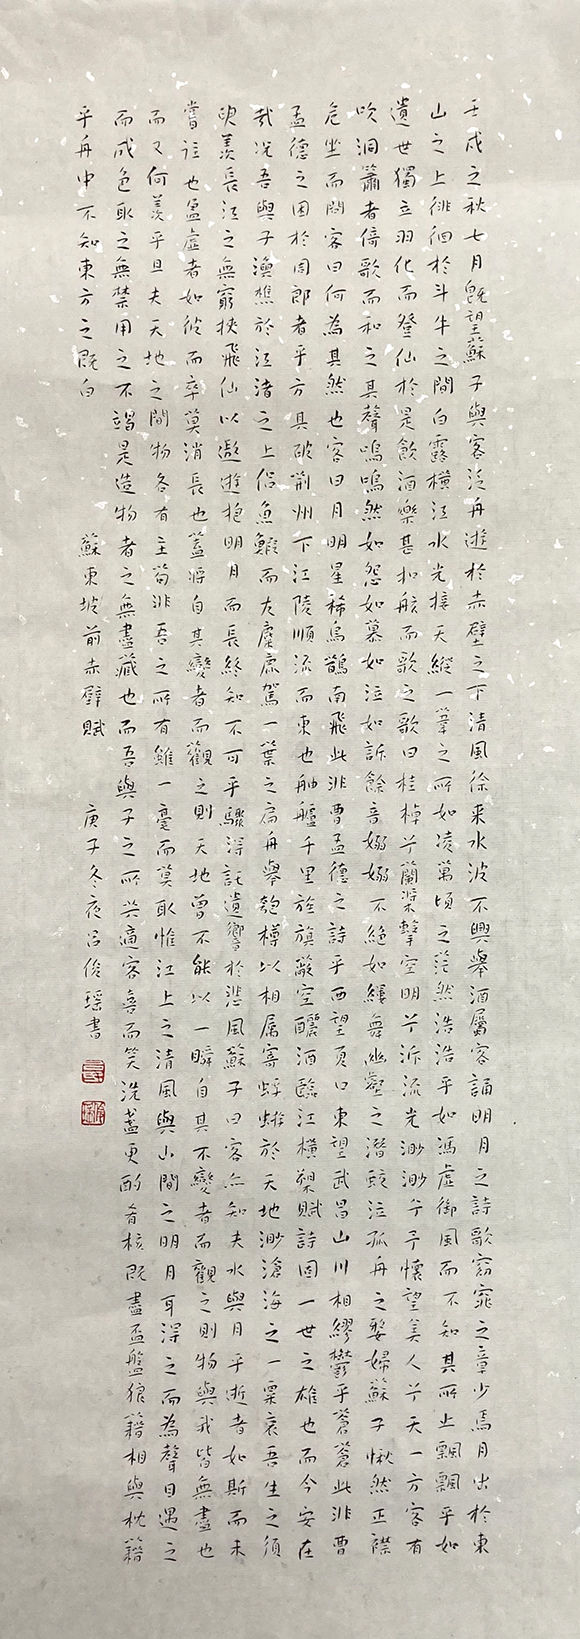 壬戌之秋七月既望蘇子與客泛舟遊於赤壁之下清風徐来水波不興舉酒屬客誦明月之詩歌窈窕之章少焉月出於東
山之上徘徊於斗牛之間白露橫江水光接天縱一葦之所如凌萬頃之茫然浩浩乎如馮虛御風而不知其所止飄飄乎如
遺世獨立羽化而登仙於是飲酒樂甚扣舷而歌之歌曰桂棹兮蘭槳擊空明兮泝流光渺渺兮予懷望美人兮天一方客有
吹洞簫者倚歌而和之其聲嗚嗚然如怨如慕如泣如訴餘音嫋嫋不絕如縷舞幽壑之潛蛟泣孤舟之嫠婦蘇子愀然正襟
危坐而問客曰何為其然也客曰月明星稀烏鵲南飛此非曹孟德之詩乎西望夏口東望武昌山川相繆鬱乎蒼蒼此非曹
孟德之困於周郎者乎方其破荆州下江陵順流而東也舳艫千里旌旗蔽空釃酒臨江橫槊賦詩固一世之雄也而今安在
哉况吾與子漁樵於江渚之上侶魚鰕而友麋鹿駕一葉之扁舟舉匏樽以相属寄蜉蝣於天地渺滄海之一粟哀吾生之須
臾羡長江之無窮挾飛仙以遨遊抱明月而長終知不可乎驟得託遺響於悲風蘇子曰客亦知夫水與月乎逝者如斯而未
嘗往也盈虛者如彼而卒莫消長也蓋將自其變者而觀之則天地曾不能以一瞬自其不變者而觀之則物與我皆無盡也
而又何羡乎且夫天地之間物各有主苟非吾之所有雖一毫而莫取惟江上之清風與山間之明月耳得之而為聲目遇之
而成色取之無禁用之不竭是造物者之無盡藏也而吾與子之所共適客喜而笑洗盞更酌肴核既盡盃盤狼籍相與枕籍
乎舟中不知東方之既白
蘇東坡前赤壁賦
庚子冬夜吕俊瑶書